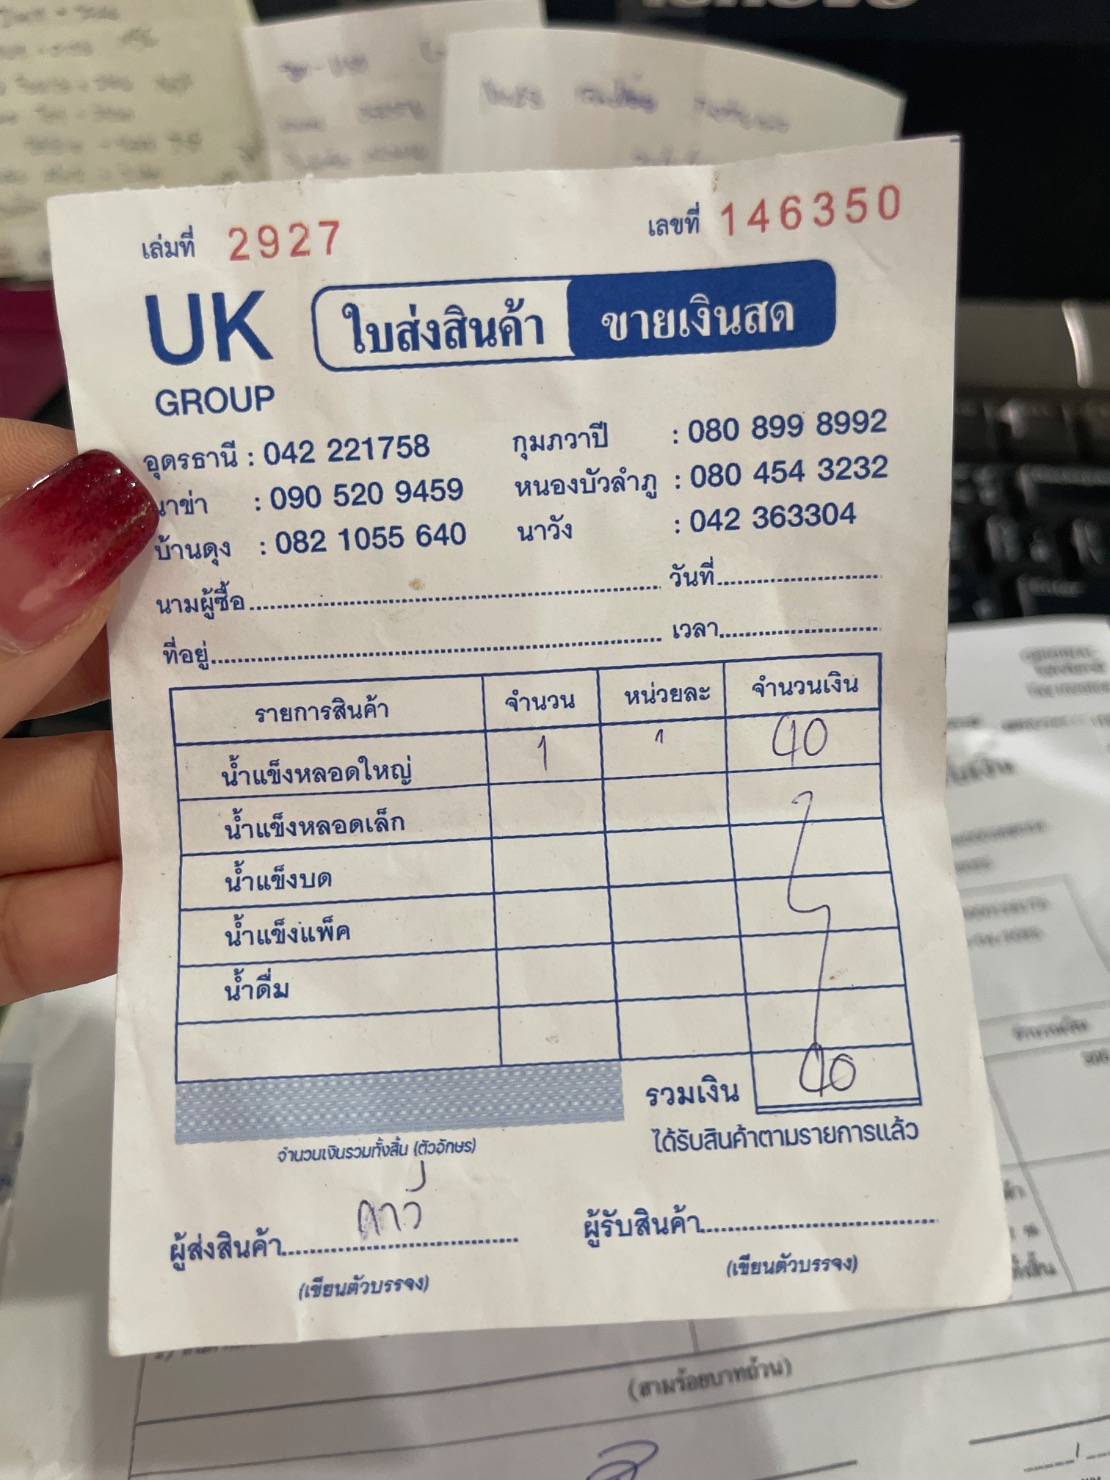 เล่มที่ 2927 เลขที่ 146350
UK ใบส่งสินค้า ขายเงินสด
GROUP
อุดรธานี : 042 221758 กุมภวาปี : 080 899 8992
นาข่า : 090 520 9459 หนองบัวลำภู : 080 454 3232
บ้านดุง : 082 1055 640 นาวัง : 042 363304
นามผู้ซื้อ วันที่
ที่อยู่ เวลา
รายการสินค้า จำนวน หน่วยละ จำนวนเงิน
น้ำแข็งหลอดใหญ่ 1 40
น้ำแข็งหลอดเล็ก
น้ำแข็งบด
น้ำแข็งแพ็ค
น้ำดื่ม
รวมเงิน 40
จำนวนเงินรวมทั้งสิ้น (ตัวอักษร) ได้รับสินค้าตามรายการแล้ว
ผู้ส่งสินค้า ผู้รับสินค้า
(เขียนตัวบรรจง) (เขียนตัวบรรจง)
(สามร้อยบาทถ้วน)